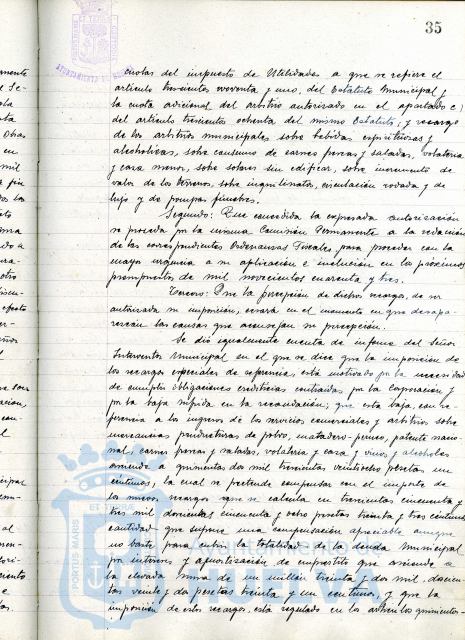 35
cuotas del impuesto de Utilidades a que se refiere el
artículo trescientos noventa y uno, del Estatuto Municipal y
la cuota adicional del arbitrio autorizado en el apartado c)
del artículo trescientos ochenta del mismo Estatuto; y recargo
de los arbitrios municipales sobre bebidas espirituosas y
alcoholicas, sobre consumo de carnes frescas y saladas, volateria
y caza menor, sobre solares sin edificar, sobre incremento de
valor de los terrenos, sobre inquilinatos, circulación rodada y de
lujo y de pompas fúnebres.
Segundo: Que concedida la expresada autorización
se proceda por la misma Comisión Permanente a la redacción
de las correspondientes Ordenanzas Fiscales, para proceder con la
mayor urgencia a su aplicación e inclusión en los próximos
presupuestos de mil novecientos cuarenta y tres.
Tercero: Que la percepción de dichos recargos, de ser
autorizada su imposición, cesará en el momento en que desapa-
rezcan las causas que aconsejan su percepción.
Se dió igualmente cuenta de informe del Señor
Interventor Municipal en el que se dice que la imposición de
los recargos especiales de referencia, está motivado por la necesidad
de cumplir obligaciones crediticias contraidas por la Corporación y
por la baja sufrida en la recaudación; que esta baja, con re-
ferencia a los ingresos de los servicios comerciales y arbitrios sobre
mercancias productivas de polvo, matadero, patente nacio-
nal, carnes frescas y saladas, volateria y caza y vinos y alcoholes
asciende a quinientas dos mil trescientas veintiocho pesetas un
centimo, la cual se pretende compensar con el importe de
los nuevos recargos que se calcula en trescientas cincuenta y
tres mil doscientas cincuenta y ocho pesetas treinta y tres céntimos,
cantidad que supone una compensación apreciable aunque
no baste para cubrir la totalidad de la deuda municipal
por intereses y amortización de emprestito que asciende a
la elevada suma de un millón treinta y dos mil, doscien-
tas veinte y dos pesetas treinta y un centimos, y que la
imposición de estos recargos, está regulado en los articulos quinientos-
PORTUS MARIS